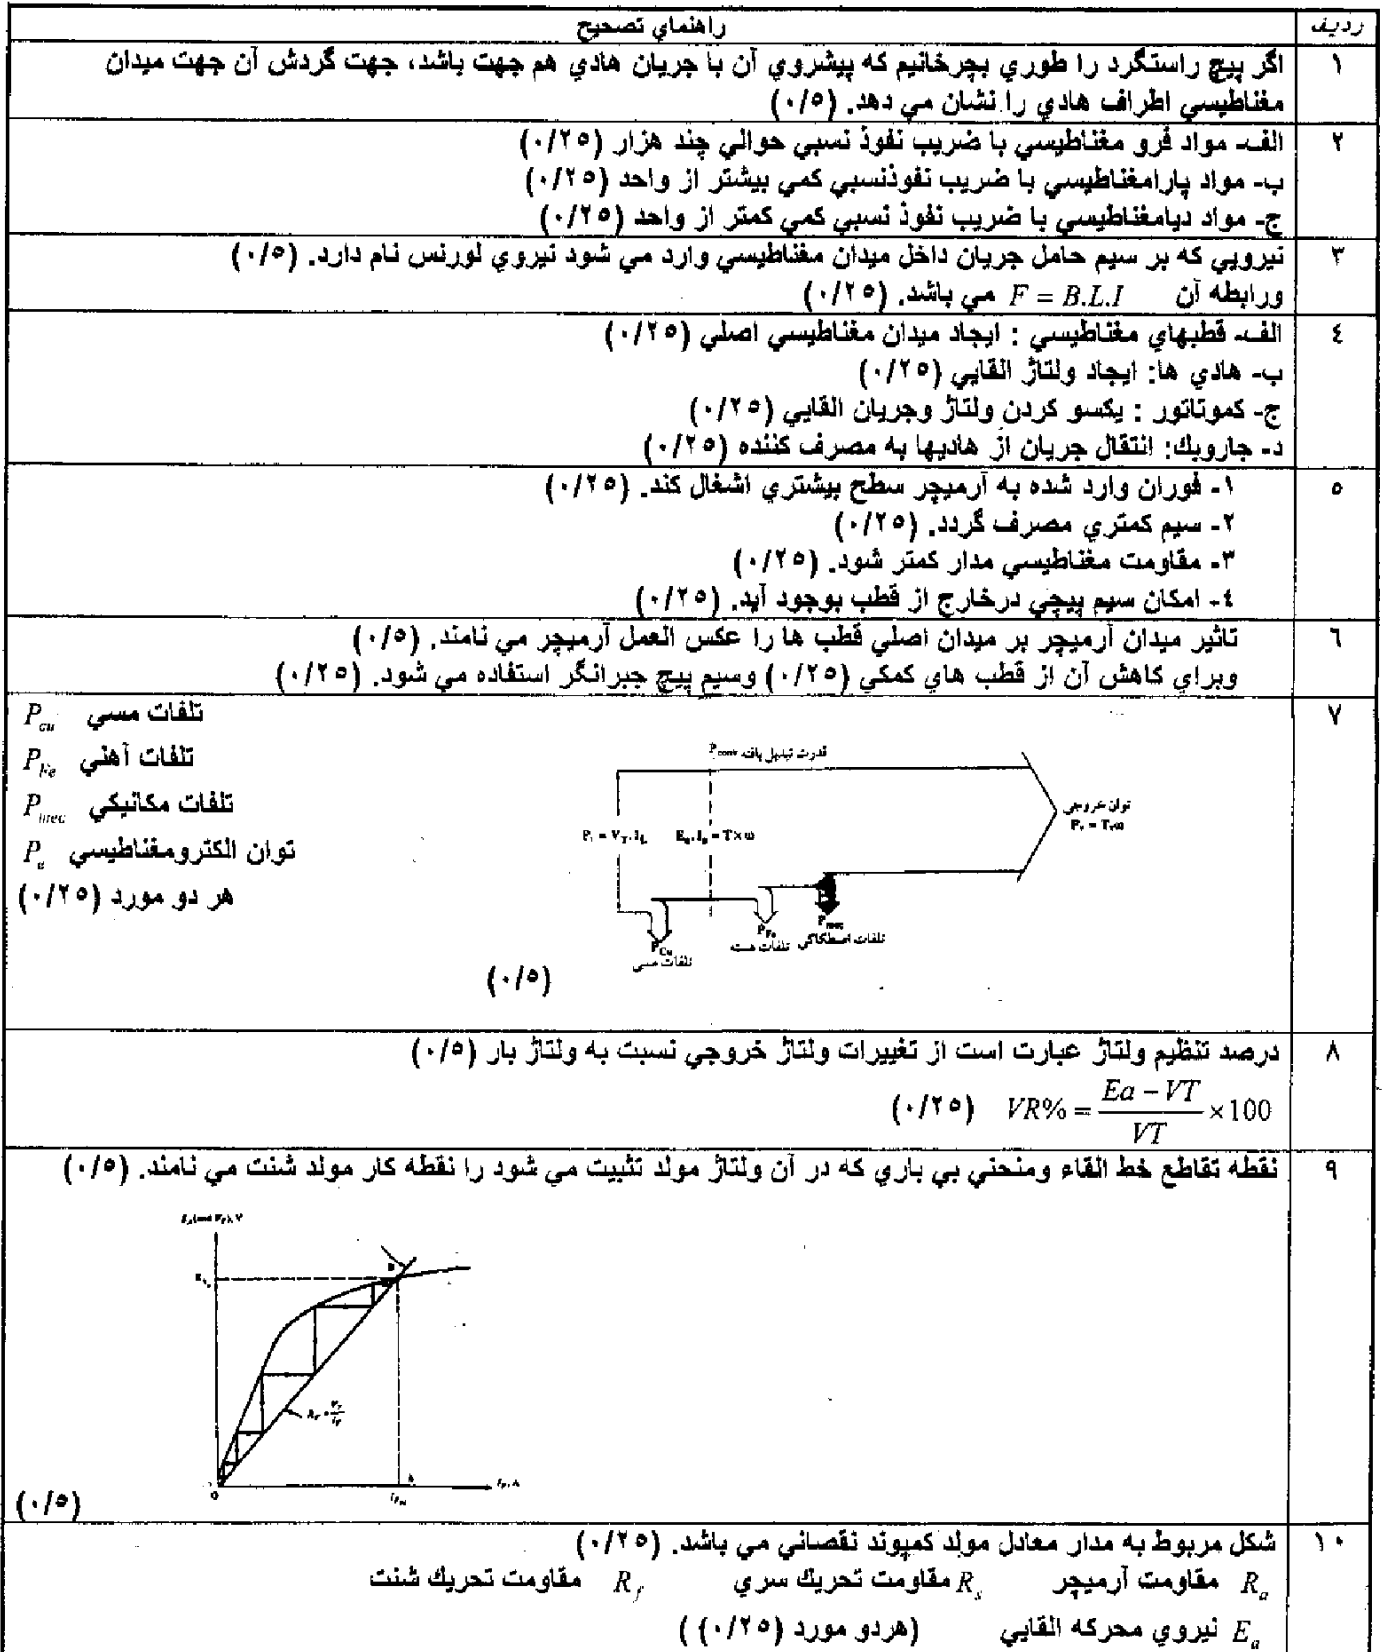 ردیف
راهنماي تصحیح
۱
اگر پیچ راستگرد را طوري بچرخانیم که پیشروي آن با جریان هادي هم جهت باشد، جهت گردش آن جهت میدان
مغناطیسي اطراف هادي را نشان مي دهد. (۰/۵)
۲
الف- مواد فرو مغناطیسي با ضریب نفوذ نسبي حوالي چند هزار (۰/۲۵)
ب- مواد پارامغناطیسي با ضریب نفوذنسبي کمي بیشتر از واحد (۰/۲۵)
ج- مواد دیامغناطیسي با ضریب نفوذ نسبي کمي کمتر از واحد (۰/۲۵)
۳
نیرویي که بر سیم حامل جریان داخل میدان مغناطیسي وارد مي شود نیروي لورنس نام دارد. (۰/۵)
ورابطه آن F = B.L.I مي باشد. (۰/۲۵)
٤
الف- قطبهاي مغناطیسي : ایجاد میدان مغناطیسي اصلي (۰/۲۵)
ب- هادي ها: ایجاد ولتاژ القایي (۰/۲۵)
ج- کموتاتور : یکسو کردن ولتاژ وجریان القایي (۰/۲۵)
د- جاروبك: انتقال جریان از هادیها به مصرف کننده (۰/۲۵)
۵
۱- فوران وارد شده به آرمیچر سطح بیشتري اشغال کند. (۰/۲۵)
۲- سیم کمتري مصرف گردد. (۰/۲۵)
۳- مقاومت مغناطیسي مدار کمتر شود. (۰/۲۵)
٤- امکان سیم پیچي درخارج از قطب بوجود آید. (۰/۲۵)
٦
تاثیر میدان آرمیچر بر میدان اصلي قطب ها را عکس العمل آرمیچر مي نامند. (۰/۵)
وبراي کاهش آن از قطب هاي کمکي (۰/۲۵) وسیم پیچ جبرانگر استفاده مي شود. (۰/۲۵)
۷
تلفات مسي P_cu
تلفات آهني P_Fe
تلفات مکانیکي P_mec
توان الکترومغناطیسي P_e
هر دو مورد (۰/۲۵)
قدرت تبدیل یافته P_conv
P_i = V_T . I_L
E_a . I_a = T × ω
توان خروجی
P_o = T.ω
P_Cu
تلفات مسی
P_Fe
تلفات هسته
P_mec
تلفات اصطکاکی
(۰/۵)
۸
درصد تنظیم ولتاژ عبارت است از تغییرات ولتاژ خروجي نسبت به ولتاژ بار (۰/۵)
VR% = (Ea − VT)/VT × 100 (۰/۲۵)
۹
نقطه تقاطع خط القاء ومنحني بي باري که در آن ولتاژ مولد تثبیت مي شود را نقطه کار مولد شنت مي نامند. (۰/۵)
R_F = V_F/I_F
0
I_F, A
(۰/۵)
۱۰
شکل مربوط به مدار معادل مولد کمپوند نقصاني مي باشد. (۰/۲۵)
R_a مقاومت آرمیچر R_s مقاومت تحریك سري R_f مقاومت تحریك شنت
E_a نیروي محرکه القایي (هردو مورد (۰/۲۵) )